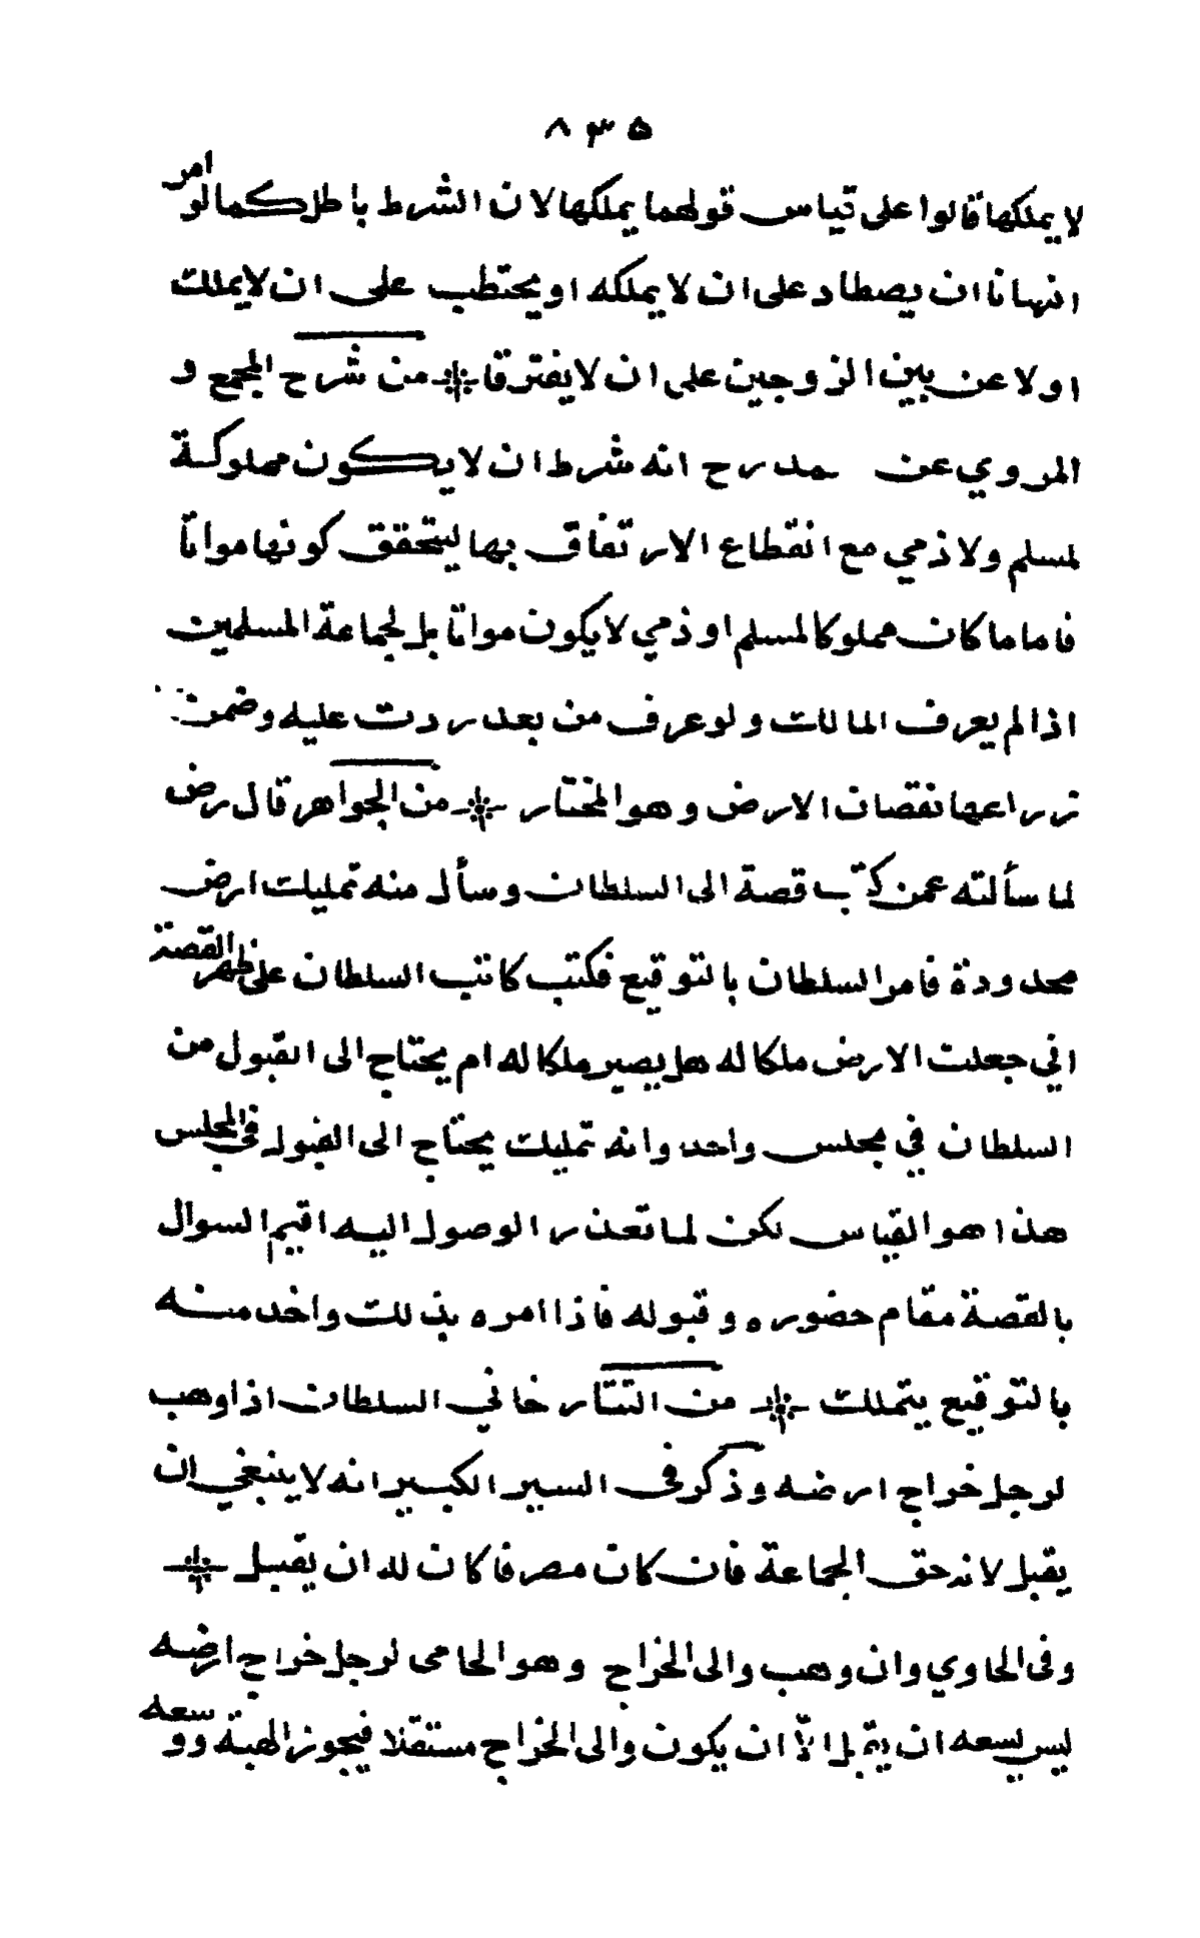 ٨٣٥
لا يملكها قالوا على قياس قولهما يملكها لان الشرط باطل كما لو امر
انسانا ان يصطاد على ان لا يملكه او يحتطب على ان لا يملك
او لاعن بين الزوجين على ان لا يفترقا * من شرح المجمع و
المروي عن محمد رح انه شرط ان لا يكون مملوكة
لمسلم ولا ذمي مع انقطاع الارتفاق بها ليتحقق كونها مواتا
فاما ما كان مملوكا لمسلم او ذمي لا يكون مواتا بل لجماعة المسلمين
اذا لم يعرف المالك ولو عرف من بعد ردت عليه وضمن
زراعها نقصان الارض وهو المختار * من الجواهر قال رض
لما سألته عمن كتب قصة الى السلطان وسأل منه تمليك ارض
محدودة فامر السلطان بالتوقيع فكتب كاتب السلطان على ظهر القصة
اني جعلت الارض ملكا له هل يصير ملكا له ام يحتاج الى القبول من
السلطان في مجلس واحد وانه تمليك يحتاج الى القبول في المجلس
هذا هو القياس لكن لما تعذر الوصول اليه اقيم السوال
بالقصة مقام حضوره وقبوله فاذا امره بذلك واخذ منه
بالتوقيع يتملك * من التتارخاني السلطان اذا وهب
لرجل خراج ارضه وذكر في السير الكبير انه لا ينبغي ان
يقبل لانه حق الجماعة فان كان مصرفا كان له ان يقبل *
وفى الحاوي وان وهب والى الخراج وهو الحامى لرجل خراج ارضه
ليس يسعه ان يقبل الاّ ان يكون والى الخراج مستقلا فيجوز الهبة ووسعه